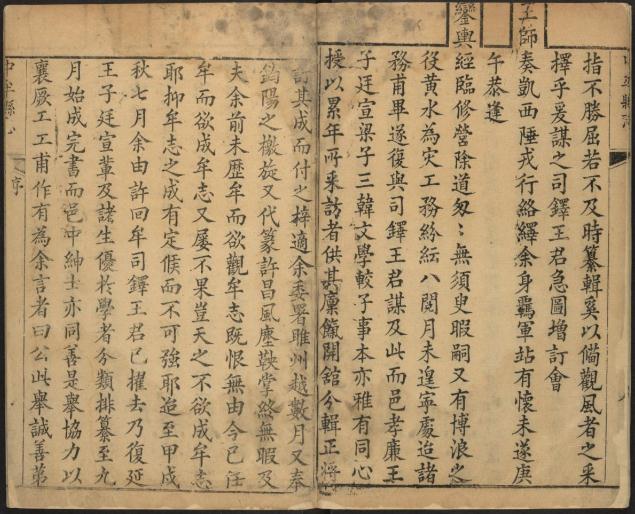 指不勝屈若不及時纂輯奚以備觀風者之采
擇乎爰謀之司鐸王君急圖增訂會
王師
奏凱西陲戎行絡繹余身羈軍站有懷未遂庚
午恭逢
鑾輿經臨修營除道匆〻無須臾暇嗣又有博浪之
役黃水為灾工務紛紜八閱月未遑寧處迨諸
務甫畢遂復與司鐸王君謀及此而邑孝廉王
子廷宣梁子三韓文學較子事本亦雅有同心
授以累年所采訪者供其廩餼開舘分輯正將
訂其成而付之梓適余委署睢州越數月又奉
鄢陽之檄旋又代篆許昌風塵鞅掌終無暇及
夫余前未歷牟而欲觀牟志既恨無由今已任
牟而欲成牟志又屢不果豈天之不欲成牟志
耶抑牟志之成有定候而不可強耶迨至甲戌
秋七月余由許回牟司鐸王君已擢去乃復延
王子廷宣輩及諸生優於學者分類排纂至九
月始成完書而邑中紳士亦同善是舉協力以
襄厥工工甫作有為余言者曰公此舉誠善第
序